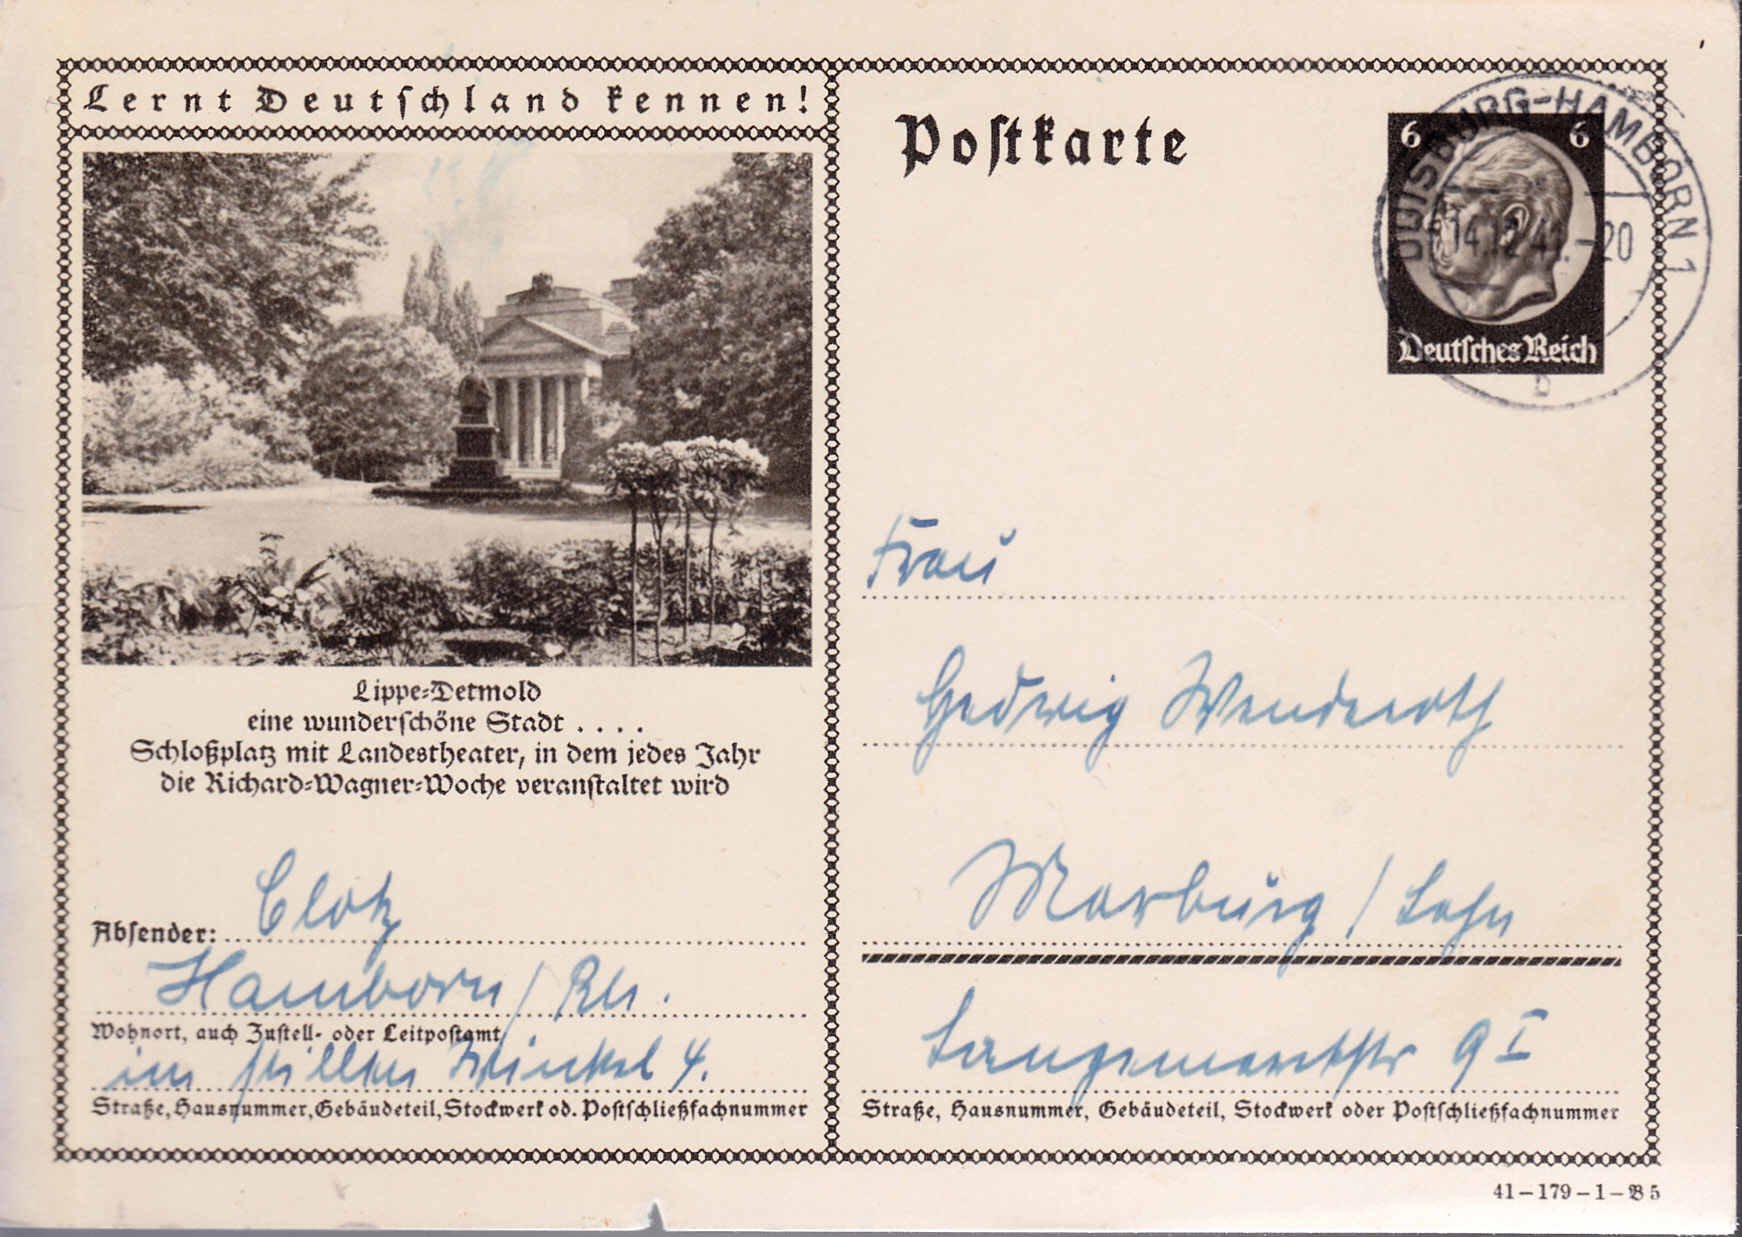 Lernt Deutschland kennen!
Lippe=Detmold
eine wunderschöne Stadt ....
Schloßplatz mit Landestheater, in dem jedes Jahr
die Richard=Wagner=Woche veranstaltet wird
Absender: Clotz
Hamborn / Rh.
Wohnort, auch Zustell- oder Leitpostamt
im stillen Winkel 4.
Straße, Hausnummer, Gebäudeteil, Stockwerk od. Postschließfachnummer
Postkarte
6 6
Deutsches Reich
DUISBURG-HAMBORN 1
14.12.41.-20
b
Frau
Hedwig Wenderoth
Marburg / Lahn
Langemarckstr 9 I
Straße, Hausnummer, Gebäudeteil, Stockwerk oder Postschließfachnummer
41-179-1-B5